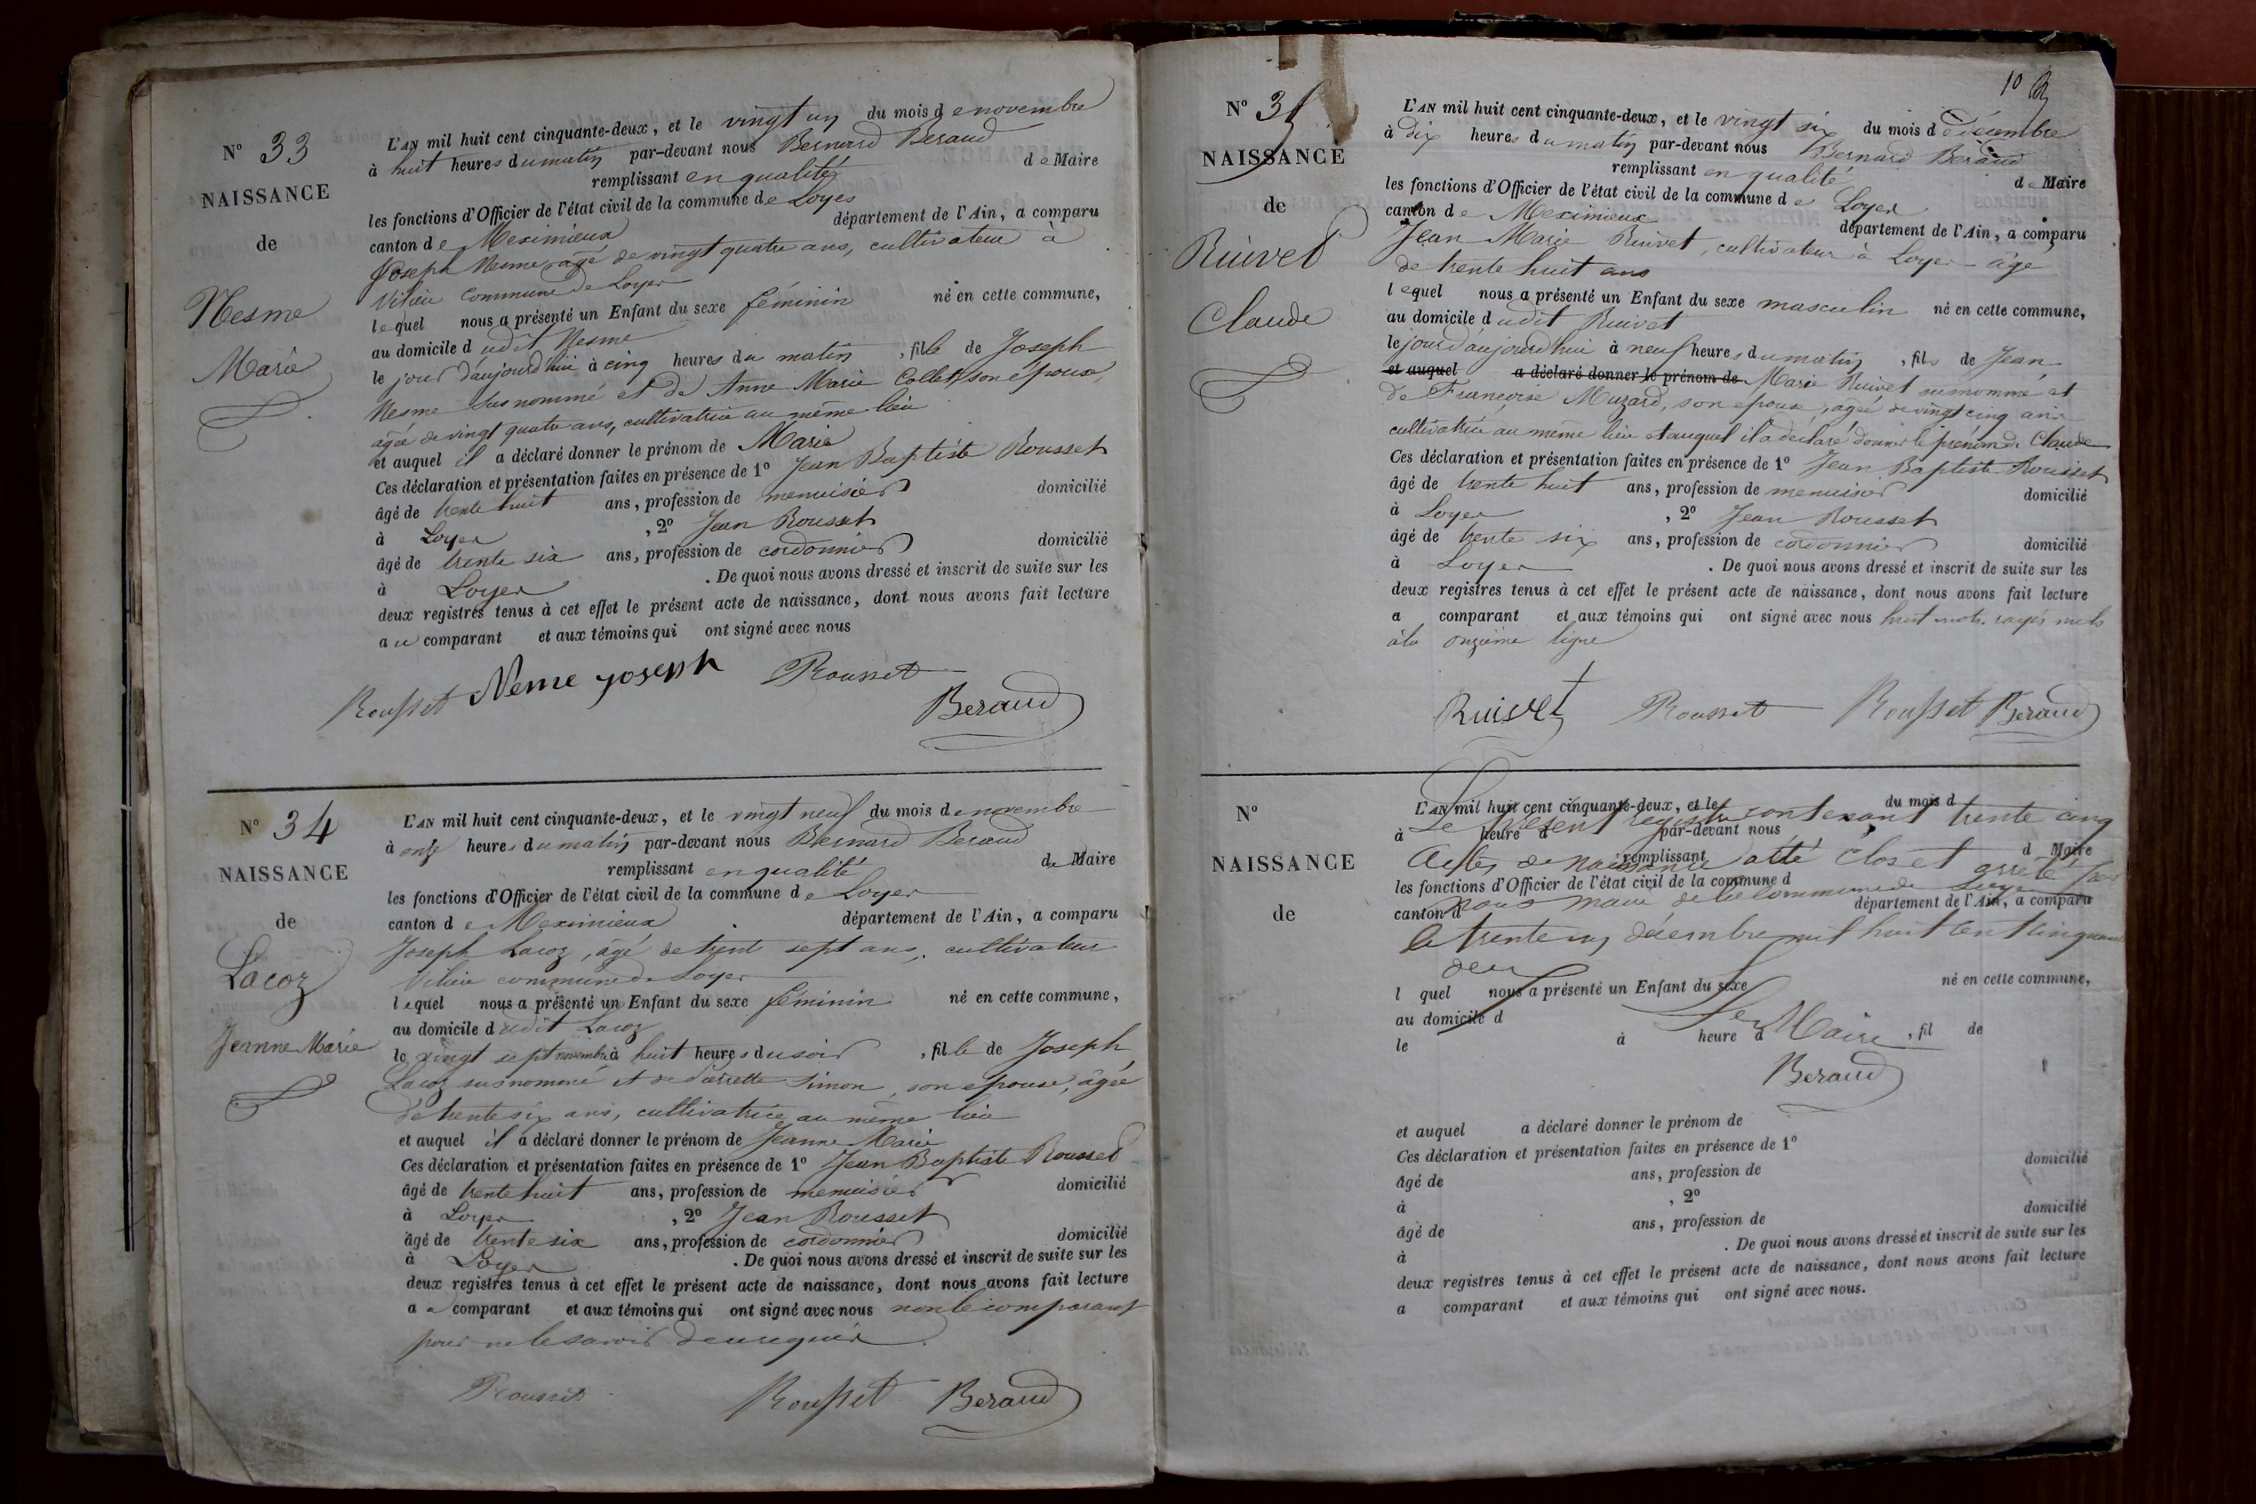 N° 33
NAISSANCE
de
Nesme
Marie
L'AN mil huit cent cinquante-deux, et le vingt un du mois de novembre
à huit heures du matin par-devant nous Bernard Beraud
remplissant en qualité de Maire
les fonctions d'Officier de l'état civil de la commune de Loyes
canton de Meximieux département de l'Ain, a comparu
Joseph Nesme, âgé de vingt quatre ans, cultivateur à
Vilieu commune de Loyes
lequel nous a présenté un Enfant du sexe féminin né en cette commune,
au domicile dudit Nesme
le jour d'aujourd'hui à cinq heures du matin, fille de Joseph
Nesme susnommé et de Anne Marie Collet, son épouse,
âgée de vingt quatre ans, cultivatrice au même lieu
et auquel il a déclaré donner le prénom de Marie
Ces déclaration et présentation faites en présence de 1° Jean Baptiste Rousset
âgé de trente huit ans, profession de menuisier domicilié
à Loyes, 2° Jean Rousset
âgé de trente six ans, profession de cordonnier domicilié
à Loyes. De quoi nous avons dressé et inscrit de suite sur les
deux registres tenus à cet effet le présent acte de naissance, dont nous avons fait lecture
au comparant et aux témoins qui ont signé avec nous
Rousset Neme joseph Rousset
Beraud
N° 34
NAISSANCE
de
Lacoz
Jeanne Marie
L'AN mil huit cent cinquante-deux, et le vingt neuf du mois de novembre
à onze heures du matin par-devant nous Bernard Beraud
remplissant en qualité de Maire
les fonctions d'Officier de l'état civil de la commune de Loyes
canton de Meximieux département de l'Ain, a comparu
Joseph Lacoz, âgé de trente sept ans, cultivateur
Vilieu commune de Loyes
lequel nous a présenté un Enfant du sexe féminin né en cette commune,
au domicile dudit Lacoz
le vingt sept novembre à huit heures du soir, fille de Joseph
Lacoz susnommé et de Pierrette Simon, son épouse, âgée
de trente six ans, cultivatrice au même lieu
et auquel il a déclaré donner le prénom de Jeanne Marie
Ces déclaration et présentation faites en présence de 1° Jean Baptiste Rousset
âgé de trente huit ans, profession de menuisier domicilié
à Loyes, 2° Jean Rousset
âgé de trente six ans, profession de cordonnier domicilié
à Loyes. De quoi nous avons dressé et inscrit de suite sur les
deux registres tenus à cet effet le présent acte de naissance, dont nous avons fait lecture
au comparant et aux témoins qui ont signé avec nous non le comparant
pour ne le savoir de ce requis
Rousset Rousset Beraud
10
N° 35
NAISSANCE
de
Ruivet
Claude
L'AN mil huit cent cinquante-deux, et le vingt six du mois de décembre
à dix heures du matin par-devant nous Bernard Beraud
remplissant en qualité de Maire
les fonctions d'Officier de l'état civil de la commune de Loyes
canton de Meximieux département de l'Ain, a comparu
Jean Marie Ruivet, cultivateur à Loyes âgé
de trente huit ans
lequel nous a présenté un Enfant du sexe masculin né en cette commune,
au domicile dudit Ruivet
le jour d'aujourd'hui à neuf heures du matin, fils de Jean
et auquel a déclaré donner le prénom de Marie Ruivet susnommé et
de Françoise Muzard, son épouse, âgée de vingt cinq ans
cultivatrice au même lieu et auquel il a déclaré donner le prénom de Claude
Ces déclaration et présentation faites en présence de 1° Jean Baptiste Rousset
âgé de trente huit ans, profession de menuisier domicilié
à Loyes, 2° Jean Rousset
âgé de trente six ans, profession de cordonnier domicilié
à Loyes. De quoi nous avons dressé et inscrit de suite sur les
deux registres tenus à cet effet le présent acte de naissance, dont nous avons fait lecture
a comparant et aux témoins qui ont signé avec nous huit mots rayés nuls
à la onzième ligne
Ruivet Rousset Rousset Beraud
N°
NAISSANCE
de
L'AN mil huit cent cinquante-deux, et le du mois d
Le présent registre contenant trente cinq
à heure d par-devant nous
remplissant d Maire
actes de naissance a été clos et arrêté par
les fonctions d'Officier de l'état civil de la commune d
nous maire de la commune de Loyes
canton d département de l'Ain, a comparu
le trente un décembre mil huit cent cinquante
deux
l quel nous a présenté un Enfant du sexe né en cette commune,
au domicile d
Le Maire
le à heure d, fil de
Beraud
et auquel a déclaré donner le prénom de
Ces déclaration et présentation faites en présence de 1°
âgé de ans, profession de domicilié
à, 2°
âgé de ans, profession de domicilié
à. De quoi nous avons dressé et inscrit de suite sur les
deux registres tenus à cet effet le présent acte de naissance, dont nous avons fait lecture
a comparant et aux témoins qui ont signé avec nous.